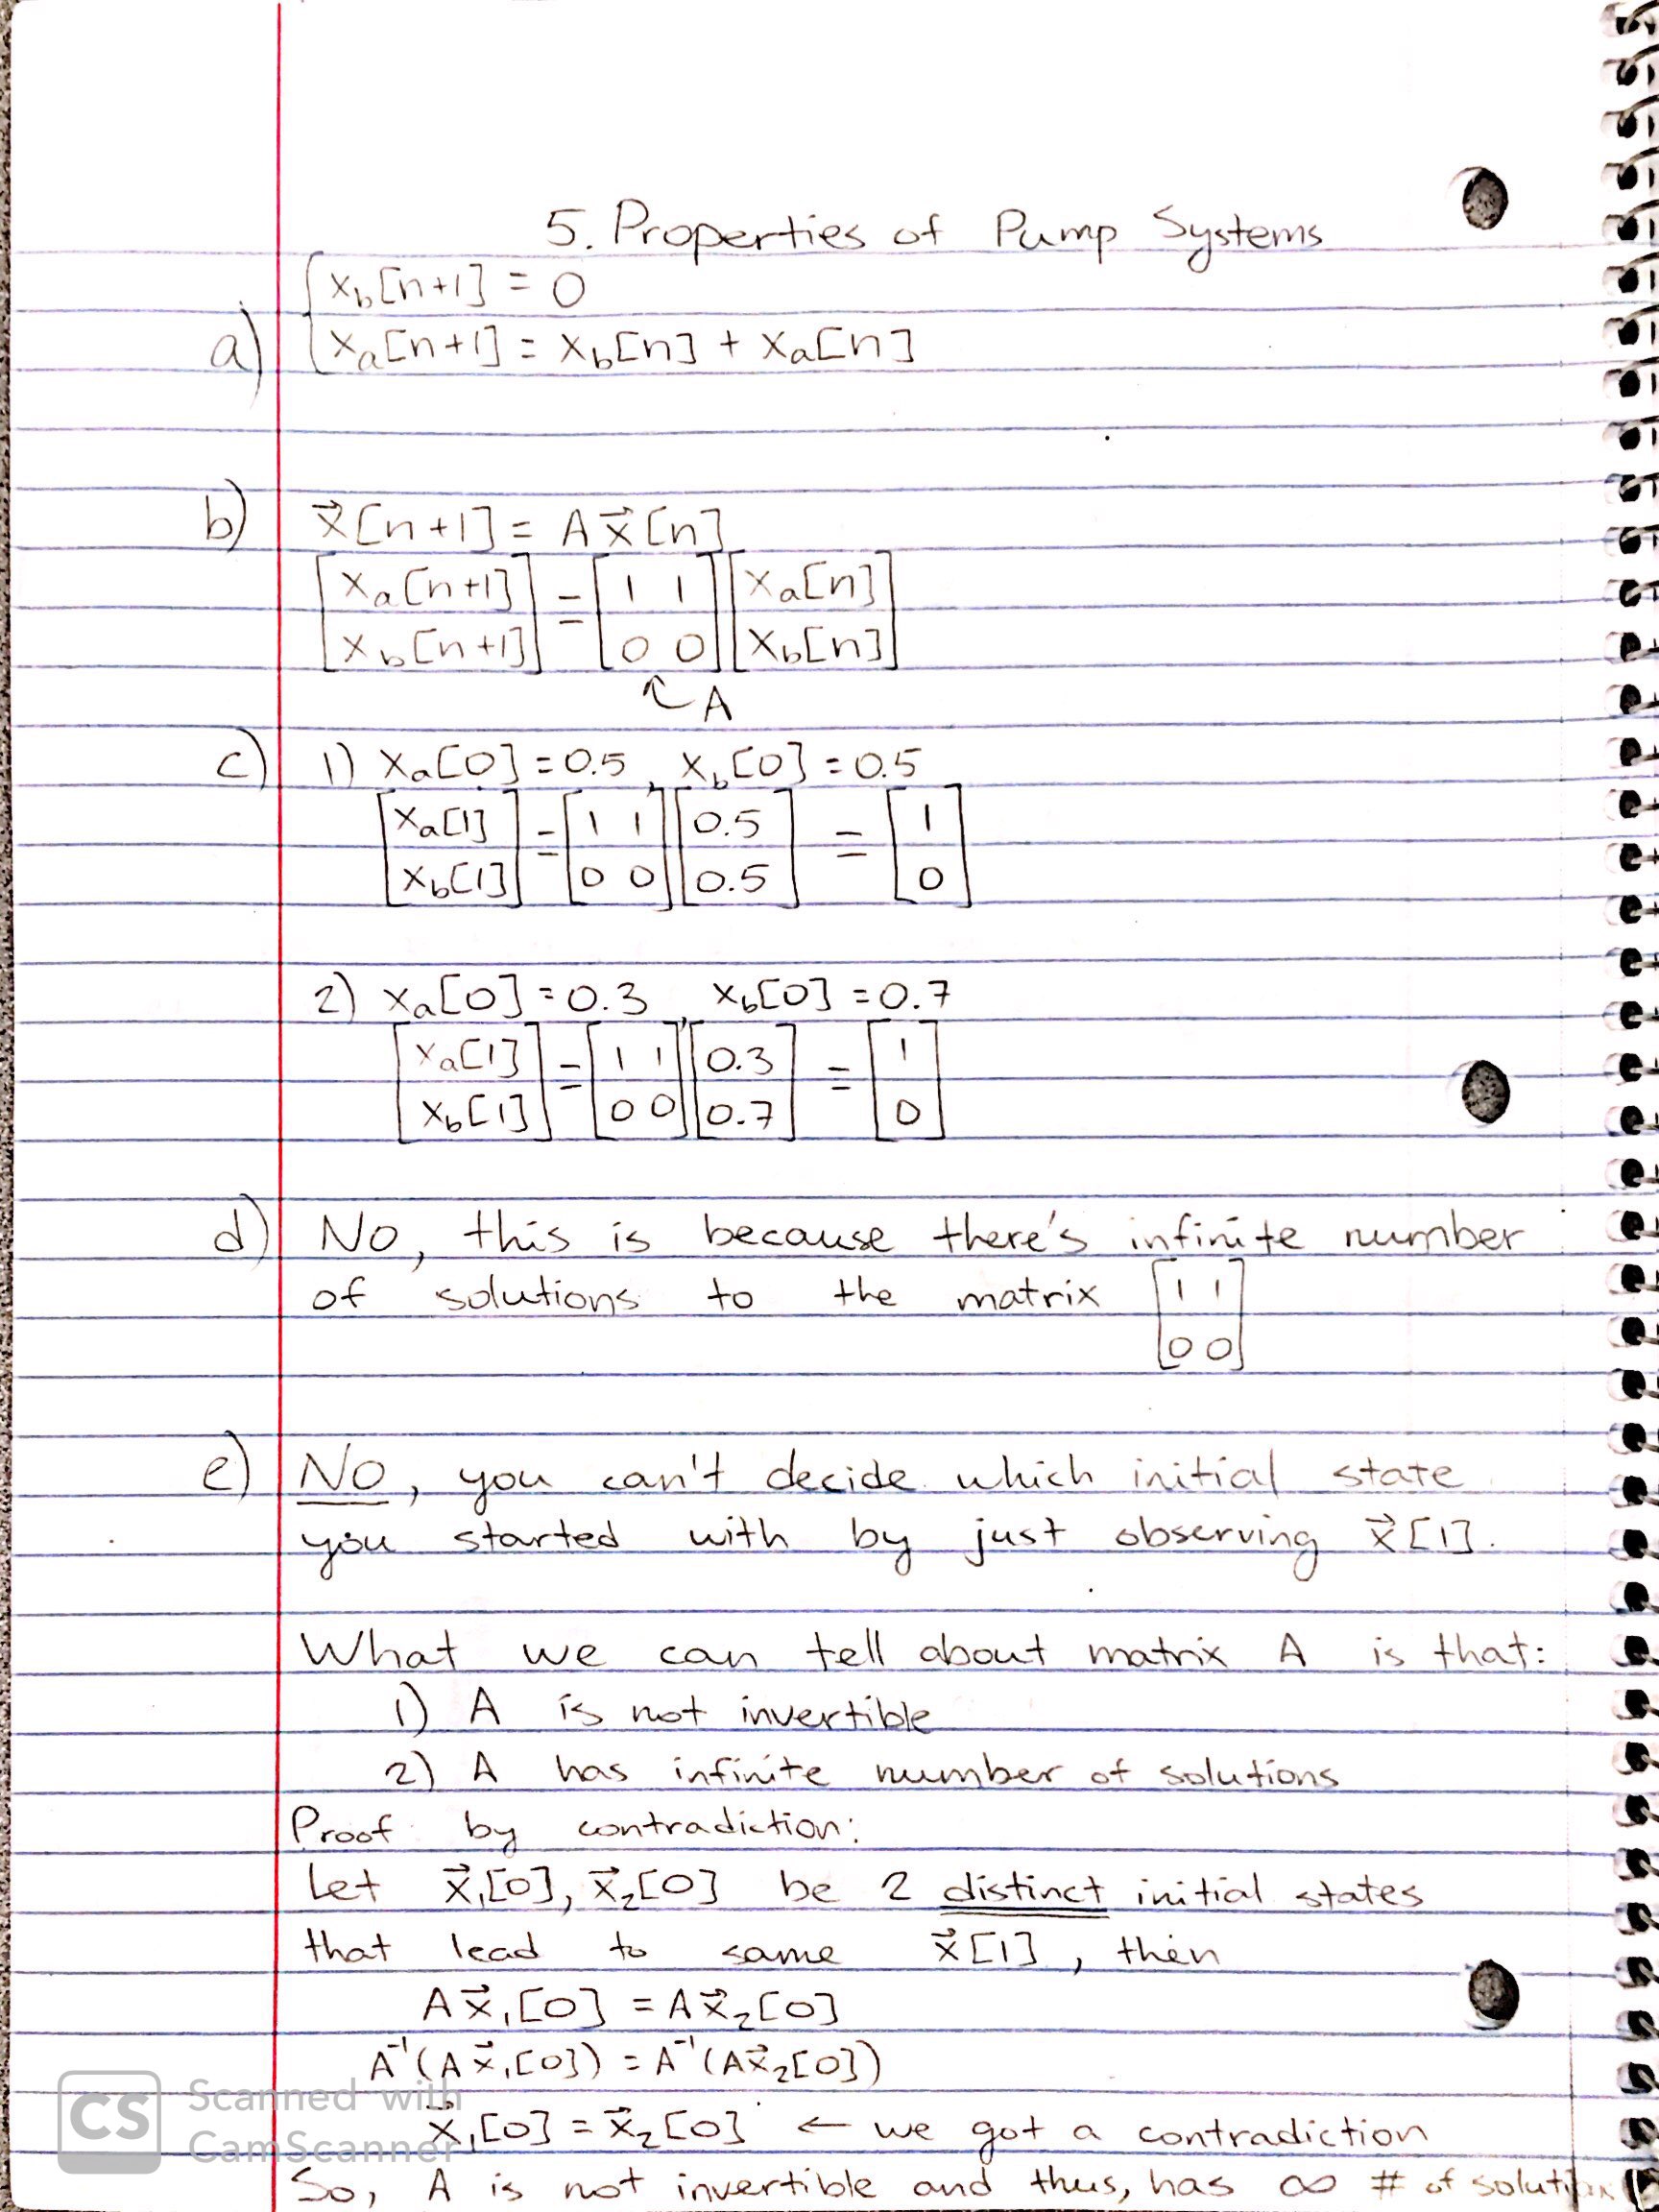 5. Properties of Pump Systems
x_b[n+1] = 0
a) x_a[n+1] = x_b[n] + x_a[n]
b) x⃗[n+1] = A x⃗[n]
[x_a[n+1]; x_b[n+1]] = [1 1; 0 0] [x_a[n]; x_b[n]]
↖ A
c) 1) x_a[0] = 0.5, x_b[0] = 0.5
[x_a[1]; x_b[1]] = [1 1; 0 0] [0.5; 0.5] = [1; 0]
2) x_a[0] = 0.3, x_b[0] = 0.7
[x_a[1]; x_b[1]] = [1 1; 0 0] [0.3; 0.7] = [1; 0]
d) No, this is because there's infinite number
of solutions to the matrix [1 1; 0 0]
e) No, you can't decide which initial state
you started with by just observing x⃗[1].
What we can tell about matrix A is that:
1) A is not invertible
2) A has infinite number of solutions
Proof by contradiction:
Let x⃗₁[0], x⃗₂[0] be 2 distinct initial states
that lead to same x⃗[1], then
A x⃗₁[0] = A x⃗₂[0]
A⁻¹(A x⃗₁[0]) = A⁻¹(A x⃗₂[0])
x⃗₁[0] = x⃗₂[0] ← we got a contradiction
So, A is not invertible and thus, has ∞ # of solution
CS Scanned with
CamScanner